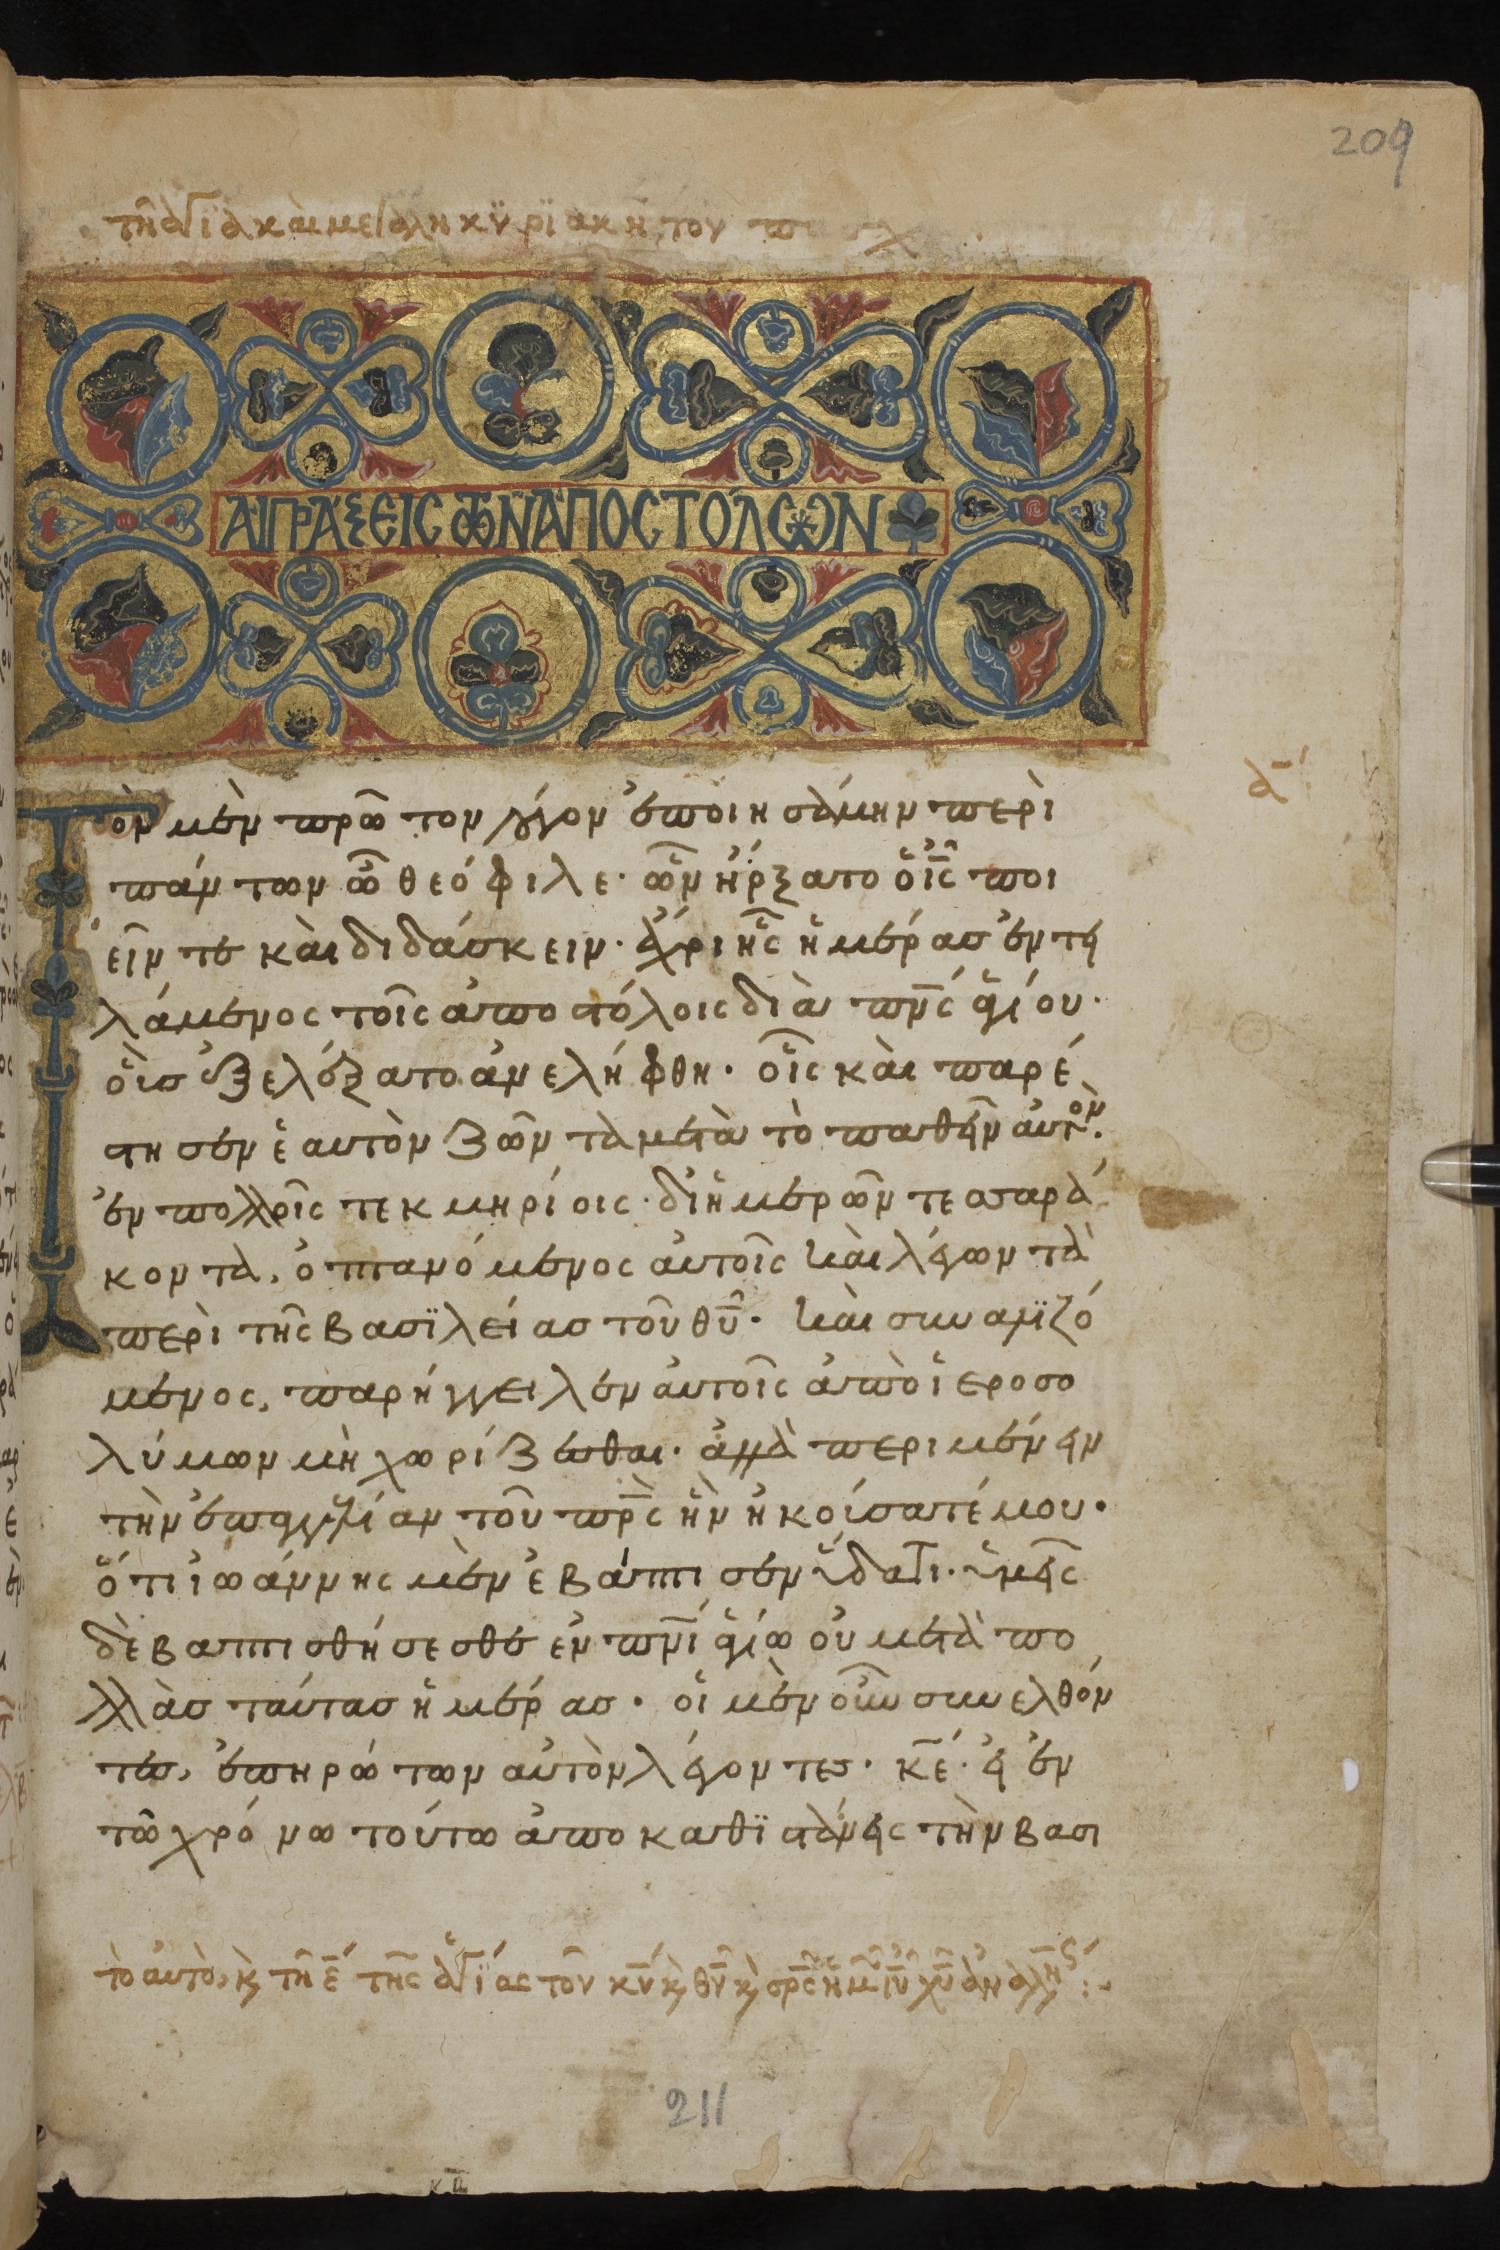 209
τῆ ἁγία καὶ μεγάλη κϋρϊακῆ τοῦ πασχ
ΑΙ ΠΡΆΞΕΙΣ ΤῶΝ ἈΠΟΣΤΌΛΩΝ
α´
Τὸν μὲν πρῶτον λόγον ἐποιησάμην περὶ
πάντων ὦ θεόφιλε· ὧν ἤρξατο ὁ ἰς ποι
εῖν τε καὶ διδάσκειν· ἄχρι ἧς ἡμέρας ἐντει
λάμενος τοῖς ἀποστόλοις διὰ πνς ἁγίου·
οὓς ἐξελέξατο ἀνελήφθη· οἷς καὶ παρέ
στησεν ἑαυτὸν ζῶντα μετὰ τὸ παθεῖν αὐτόν·
ἐν πολλοῖς τεκμηρίοις· δι ἡμερῶν τεσσαρά
κοντα, ὀπτανόμενος αὐτοῖς καὶ λέγων τὰ
περὶ τῆς βασϊλείας τοῦ θυ· καὶ συναλϊζό
μενος, παρήγγειλεν αὐτοῖς ἀπὸ ἱεροσο
λύμων μὴ χωρίζεσθαι· ἀλλὰ περιμένειν
τὴν ἐπαγγελίαν τοῦ πρς ἣν ἠκούσατέ μου·
ὅτι ἰωάννης μὲν ἐβάπτισεν ὕδατι· ὑμεῖς
δὲ βαπτισθήσεσθε ἐν πνι ἁγίω οὐ μετὰ πο
λλὰς ταύτας ἡμέρας· οἱ μὲν οὖν συνελθόν
τες, ἐπηρώτων αὐτὸν λέγοντες· κε· εἰ ἐν
τῶ χρόνω τούτω ἀποκαθϊστάνεις τὴν βασι
τὸ αὐτὸ, κ τῆ ε τῆς ἁγίας τοῦ κυ κ θυ κ σρς ἡμῶν ιυ χυ ἀναλή
211